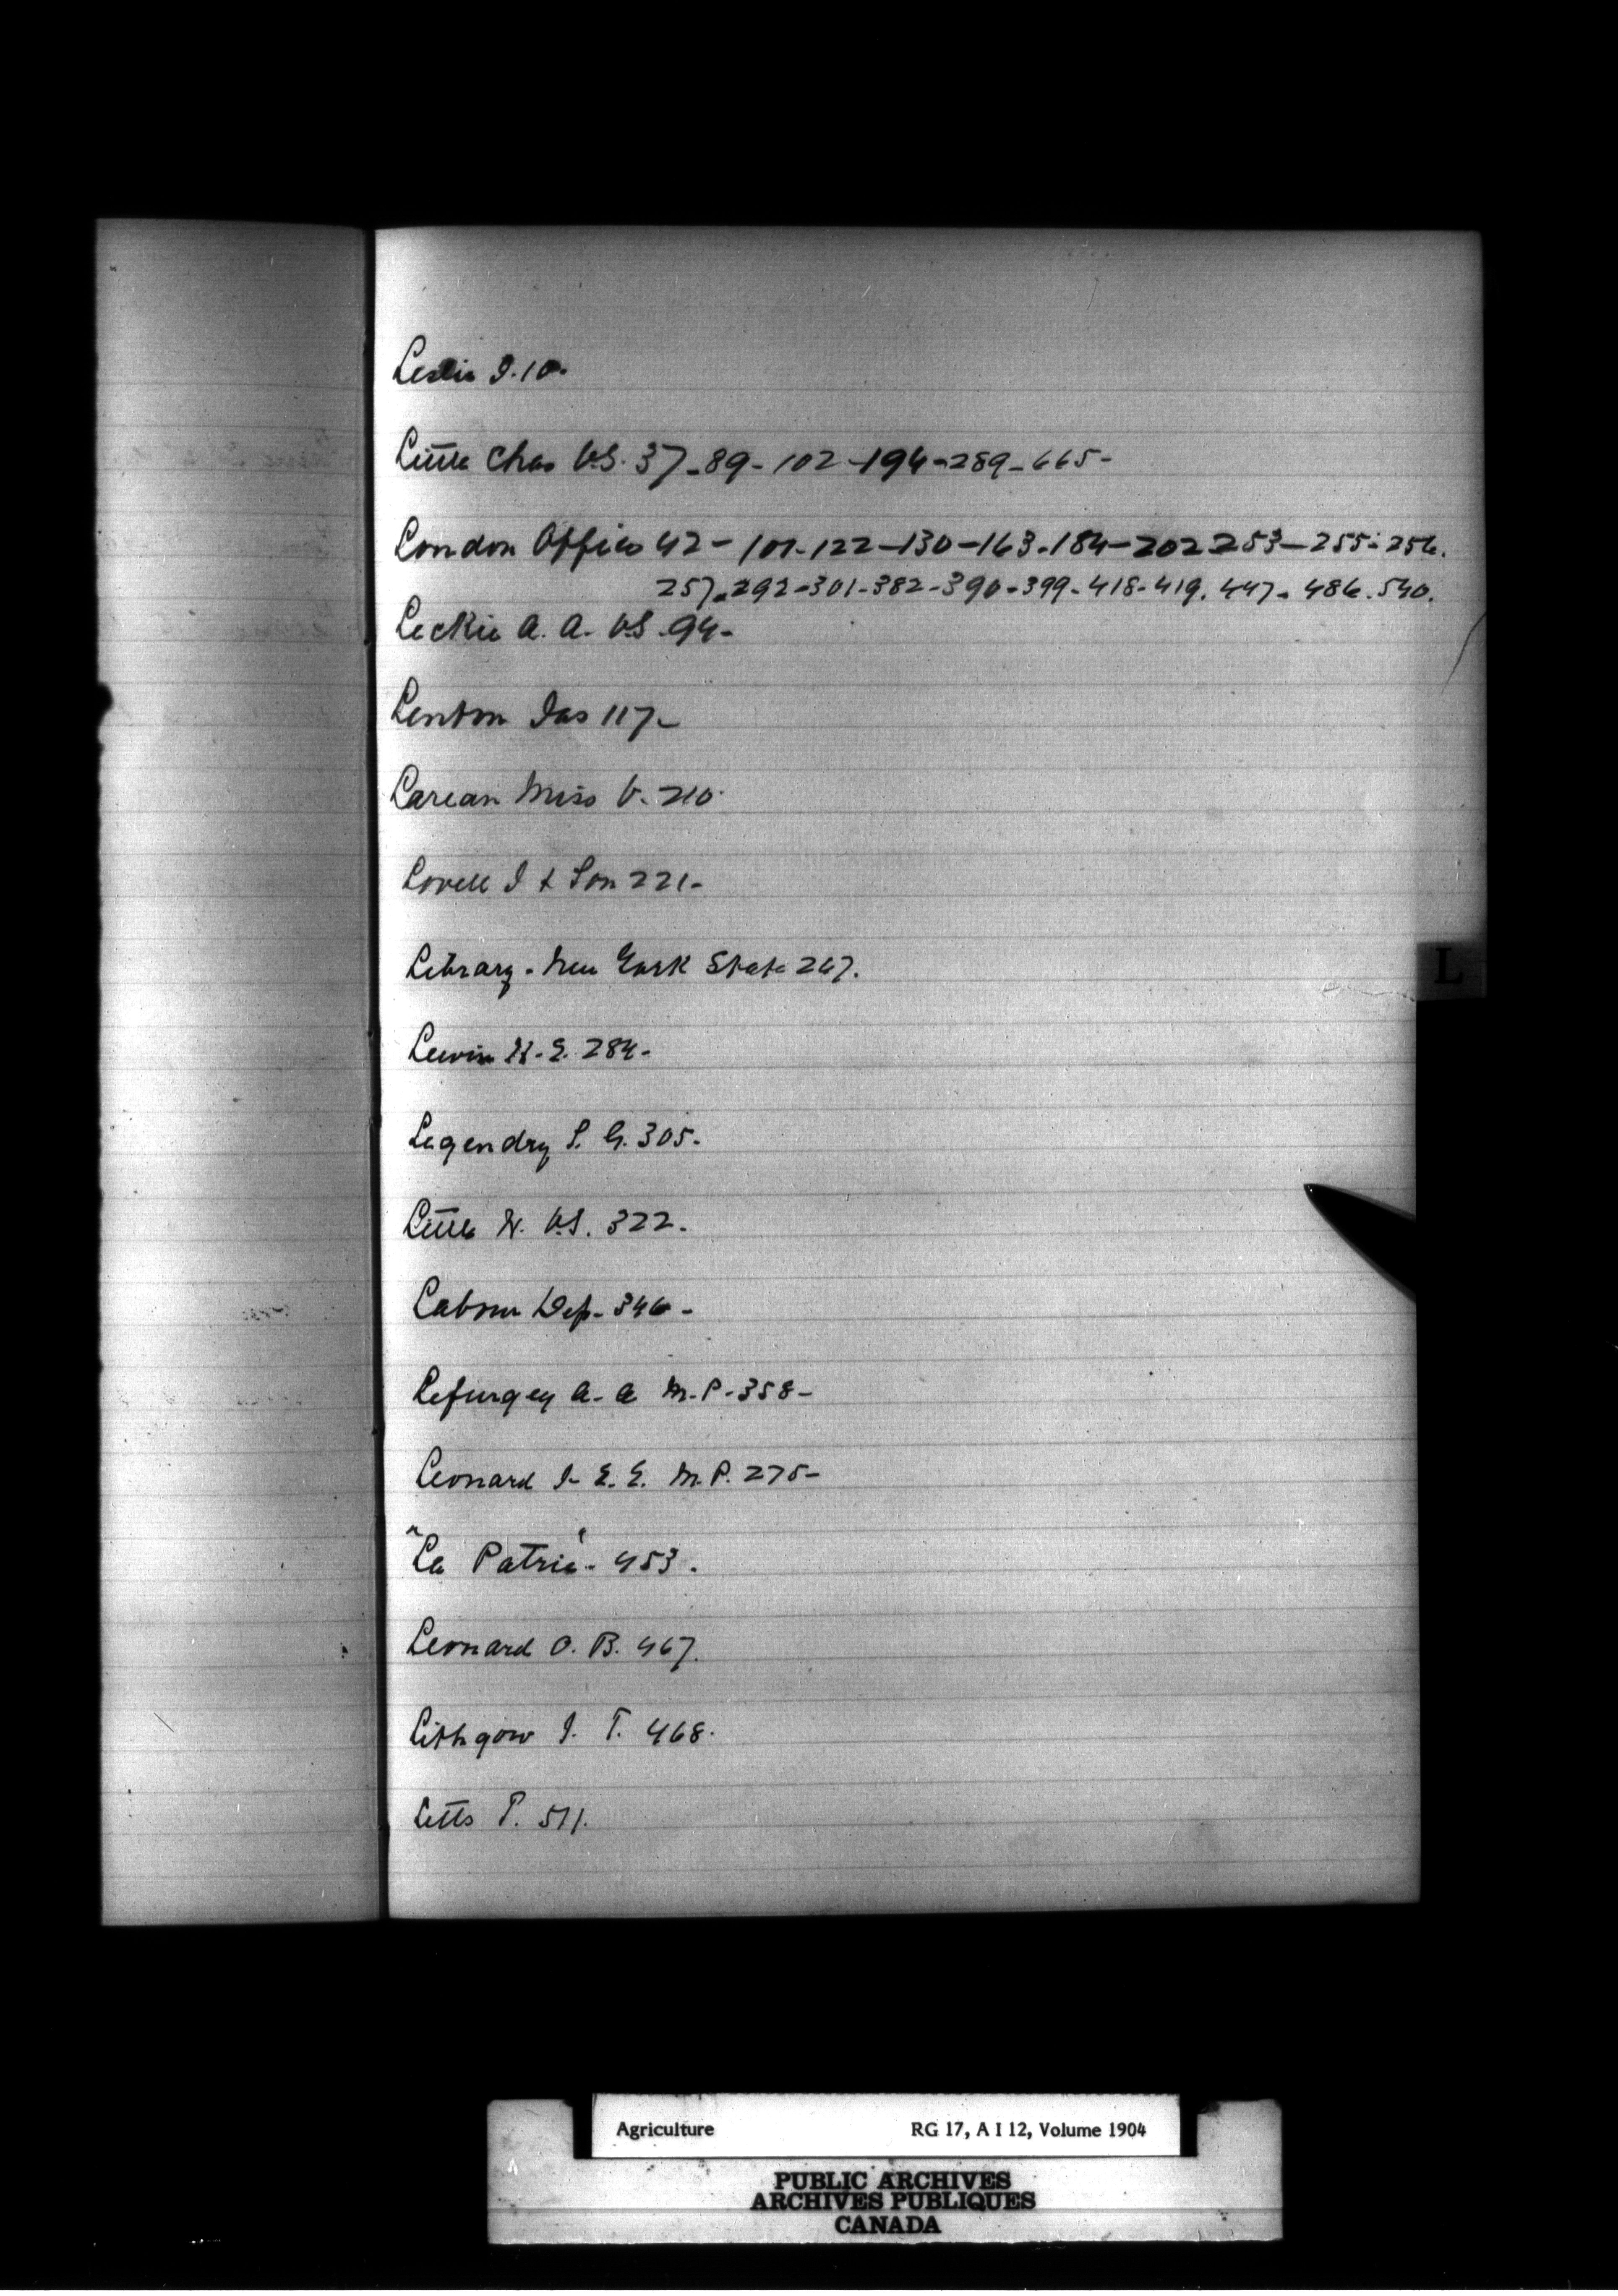 Leslie J. 10.
Little Chas V.S. 37-89-102-194-289-665-
London Office 42-101-122-130-163-184-202-253-255-256.
257-292-301-382-390-399-418-419.447-486.540.
Leckie A. A. V.S. 94-
Lenton Jas 117-
Larean Miss V. 210.
Lovell J & Son 221-
Library-New York State 267.
Lewin H-E. 284-
Legendry P. G. 305-
Little W. V.S. 322-
Labour Dep-346-
Lefurgey A-A M-P-358-
L
Leonard J-E.E. M.P. 275-
"La Patrie"-453.
Leonard O. B. 467.
Lithgow J. T. 468.
Letts P. 511.
Agriculture RG 17, A I 12, Volume 1904
PUBLIC ARCHIVES
ARCHIVES PUBLIQUES
CANADA